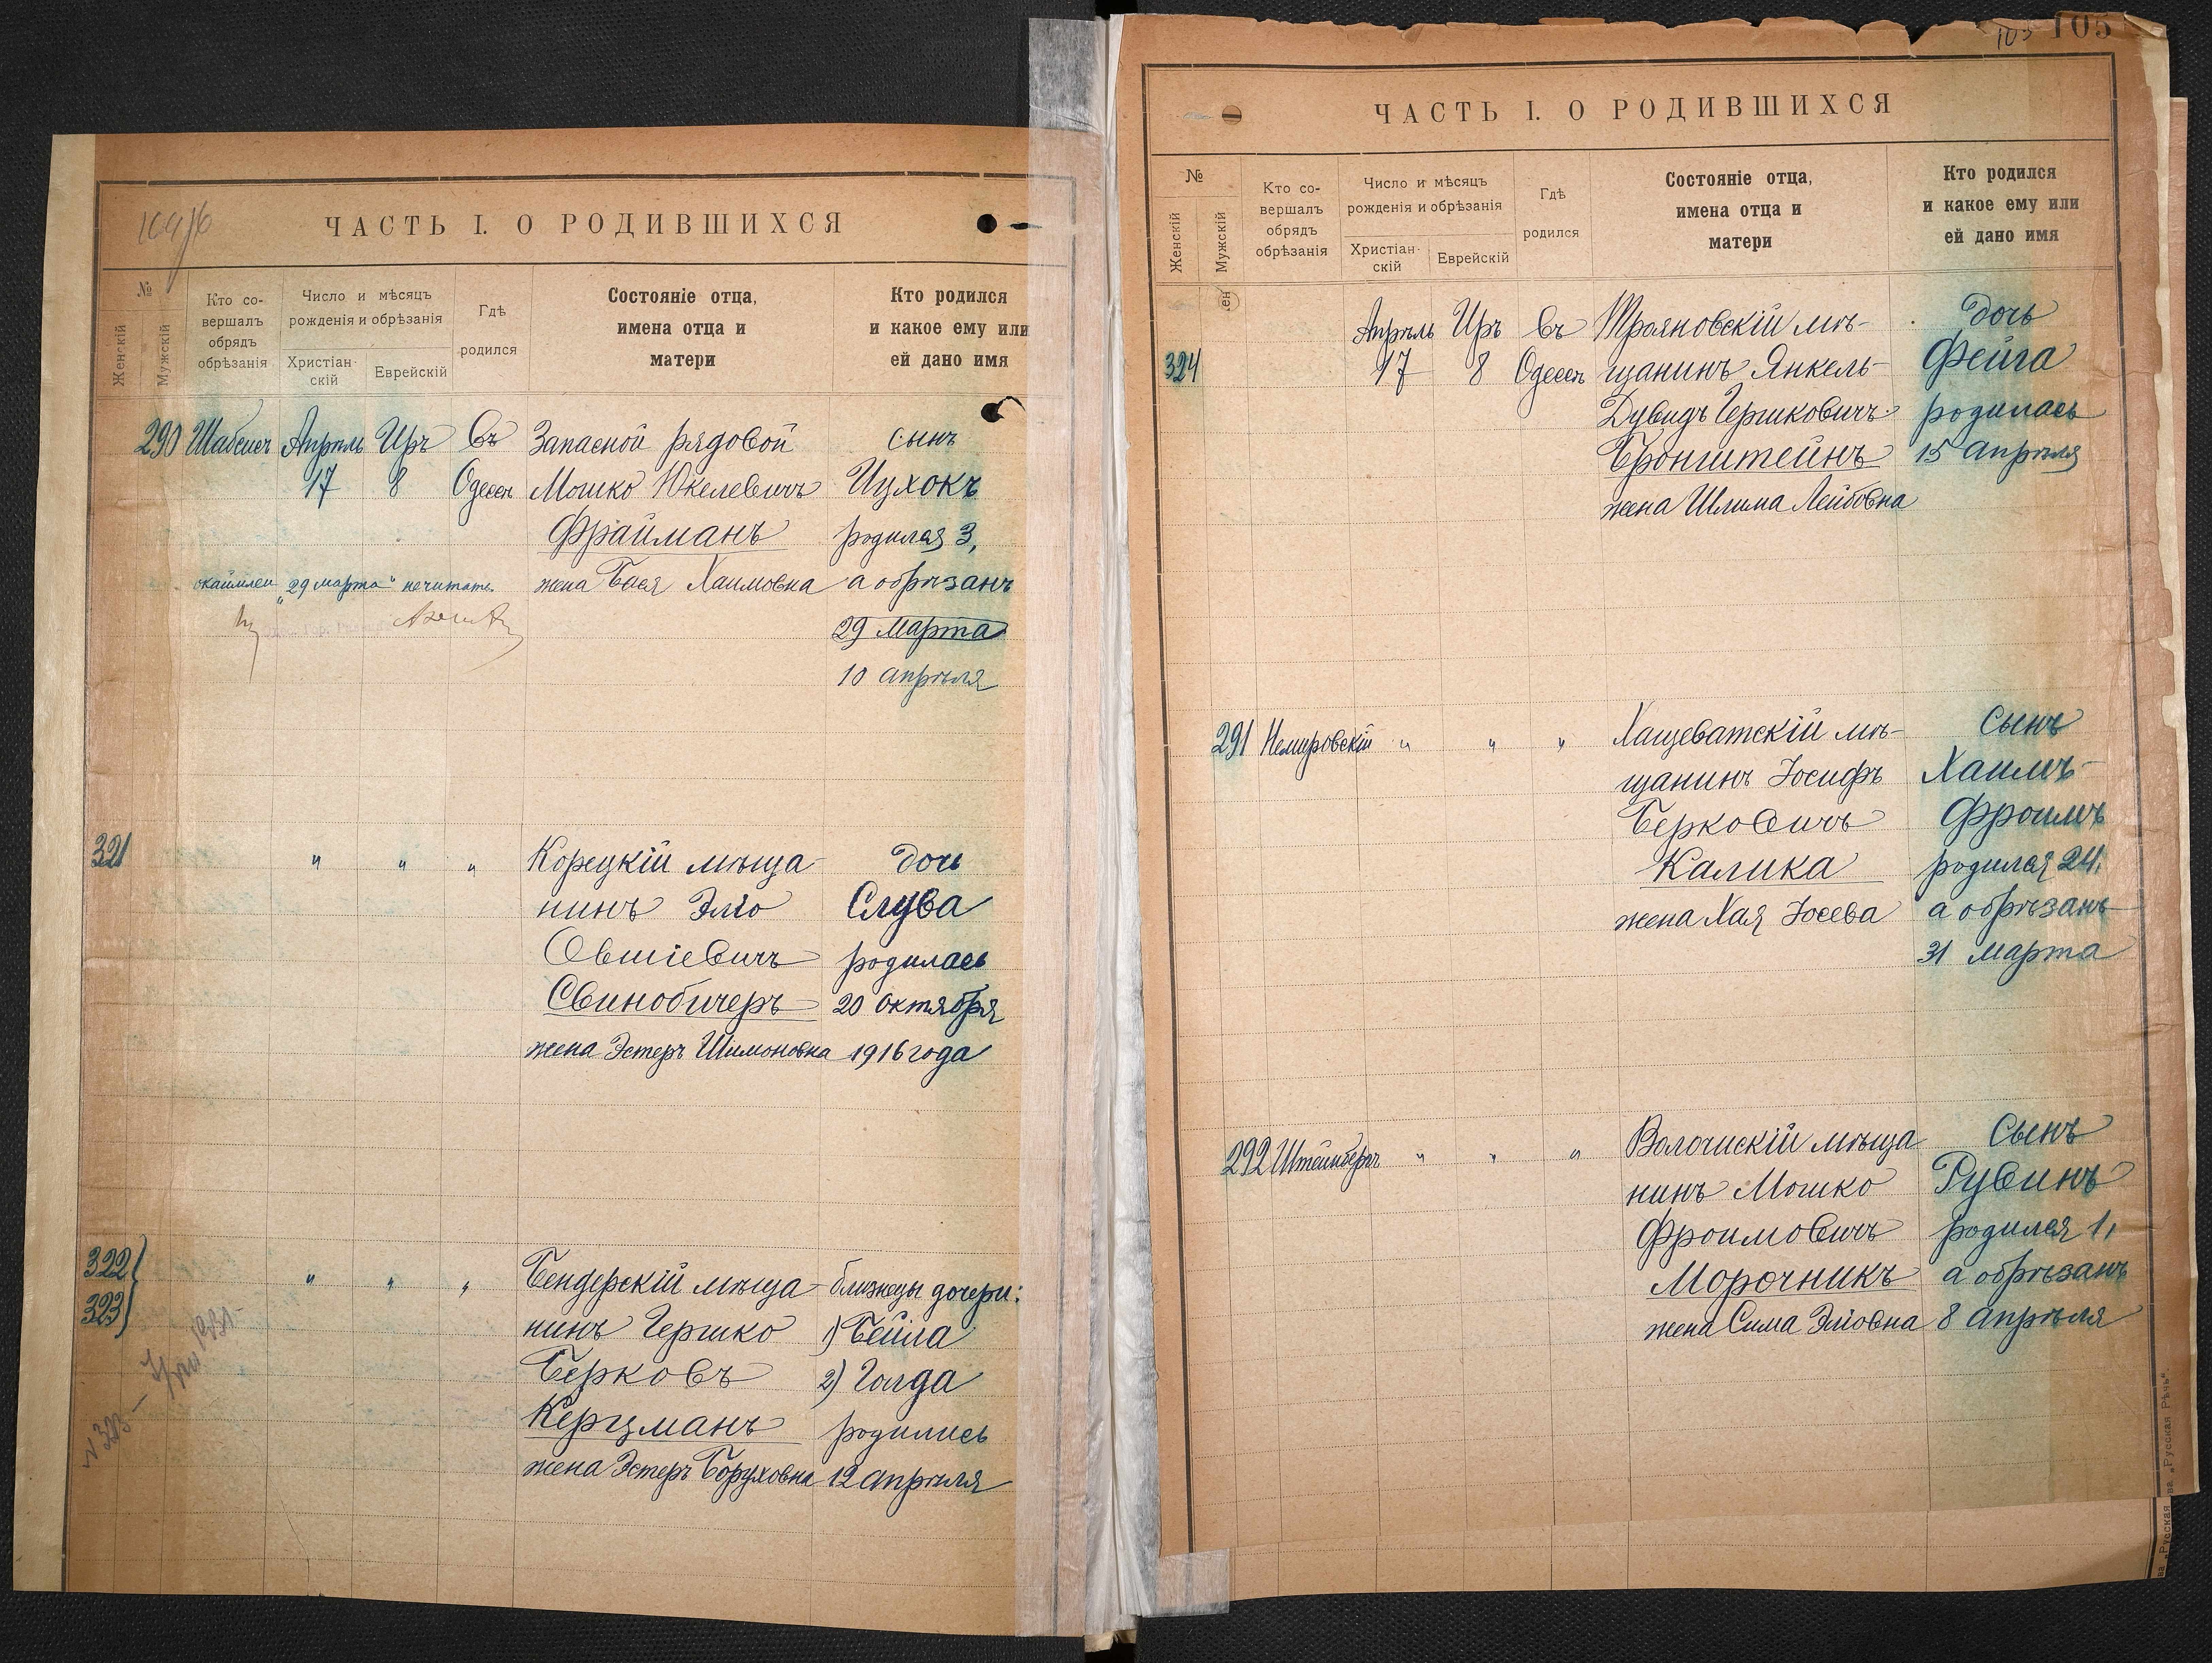 104/б
ЧАСТЬ I. О РОДИВШИХСЯ
№
Женскій
Мужскій
Кто со-
вершалъ
обрядъ
обрѣзанія
Число и мѣсяцъ
рожденія и обрѣзанія
Христіан-
скій
Еврейскій
Гдѣ
родился
Состояніе отца,
имена отца и
матери
Кто родился
и какое ему или
ей дано имя
290 Шабсисъ Апрѣль Иръ Въ Запасной рядовой сынъ
17 8 Одессѣ Мошко Юкелевичъ Ицхокъ
Фрайманъ родился 3,
окаймлен. „29 марта“ нечитать жена Бася Хаимовна а обрѣзанъ
29 марта
10 апрѣля
321 " " " Корецкій мѣща- дочь
нинъ Эліо Слува
Овшіевичъ родилась
Свинобичеръ 20 октября
жена Эстеръ Шимоновна 1916 года
322 " " " Бендерскій мѣща- близнецы дочери:
323 нинъ Гершко 1) Бейла
Берковъ 2) Голда
Керцманъ родились
жена Эстеръ Боруховна 12 апрѣля
N 323 -
103 105
ЧАСТЬ I. О РОДИВШИХСЯ
№
Женскій
Мужскій
Кто со-
вершалъ
обрядъ
обрѣзанія
Число и мѣсяцъ
рожденія и обрѣзанія
Христіан-
скій
Еврейскій
Гдѣ
родился
Состояніе отца,
имена отца и
матери
Кто родился
и какое ему или
ей дано имя
Апрѣль Иръ Въ Трояновскій мѣ- дочь
324 17 8 Одессѣ щанинъ Янкель- Фейга
Дувидъ Гершковичъ родилась
Бронштейнъ 15 апрѣля
жена Шлима Лейбовна
291 Немировскій " " " Хащеватскій мѣ- сынъ
щанинъ Іосифъ Хаимъ-
Берковичъ Фроимъ
Калика родился 24,
жена Хая Іосева а обрѣзанъ
31 марта
292 Штейнбергъ " " " Волочискій мѣща- Сынъ
нинъ Мошко Рувинъ
Фроимовичъ родился 1,
Морочникъ а обрѣзанъ
жена Сима Эліовна 8 апрѣля
ва „Русская Рѣчь“.
ва „Русская